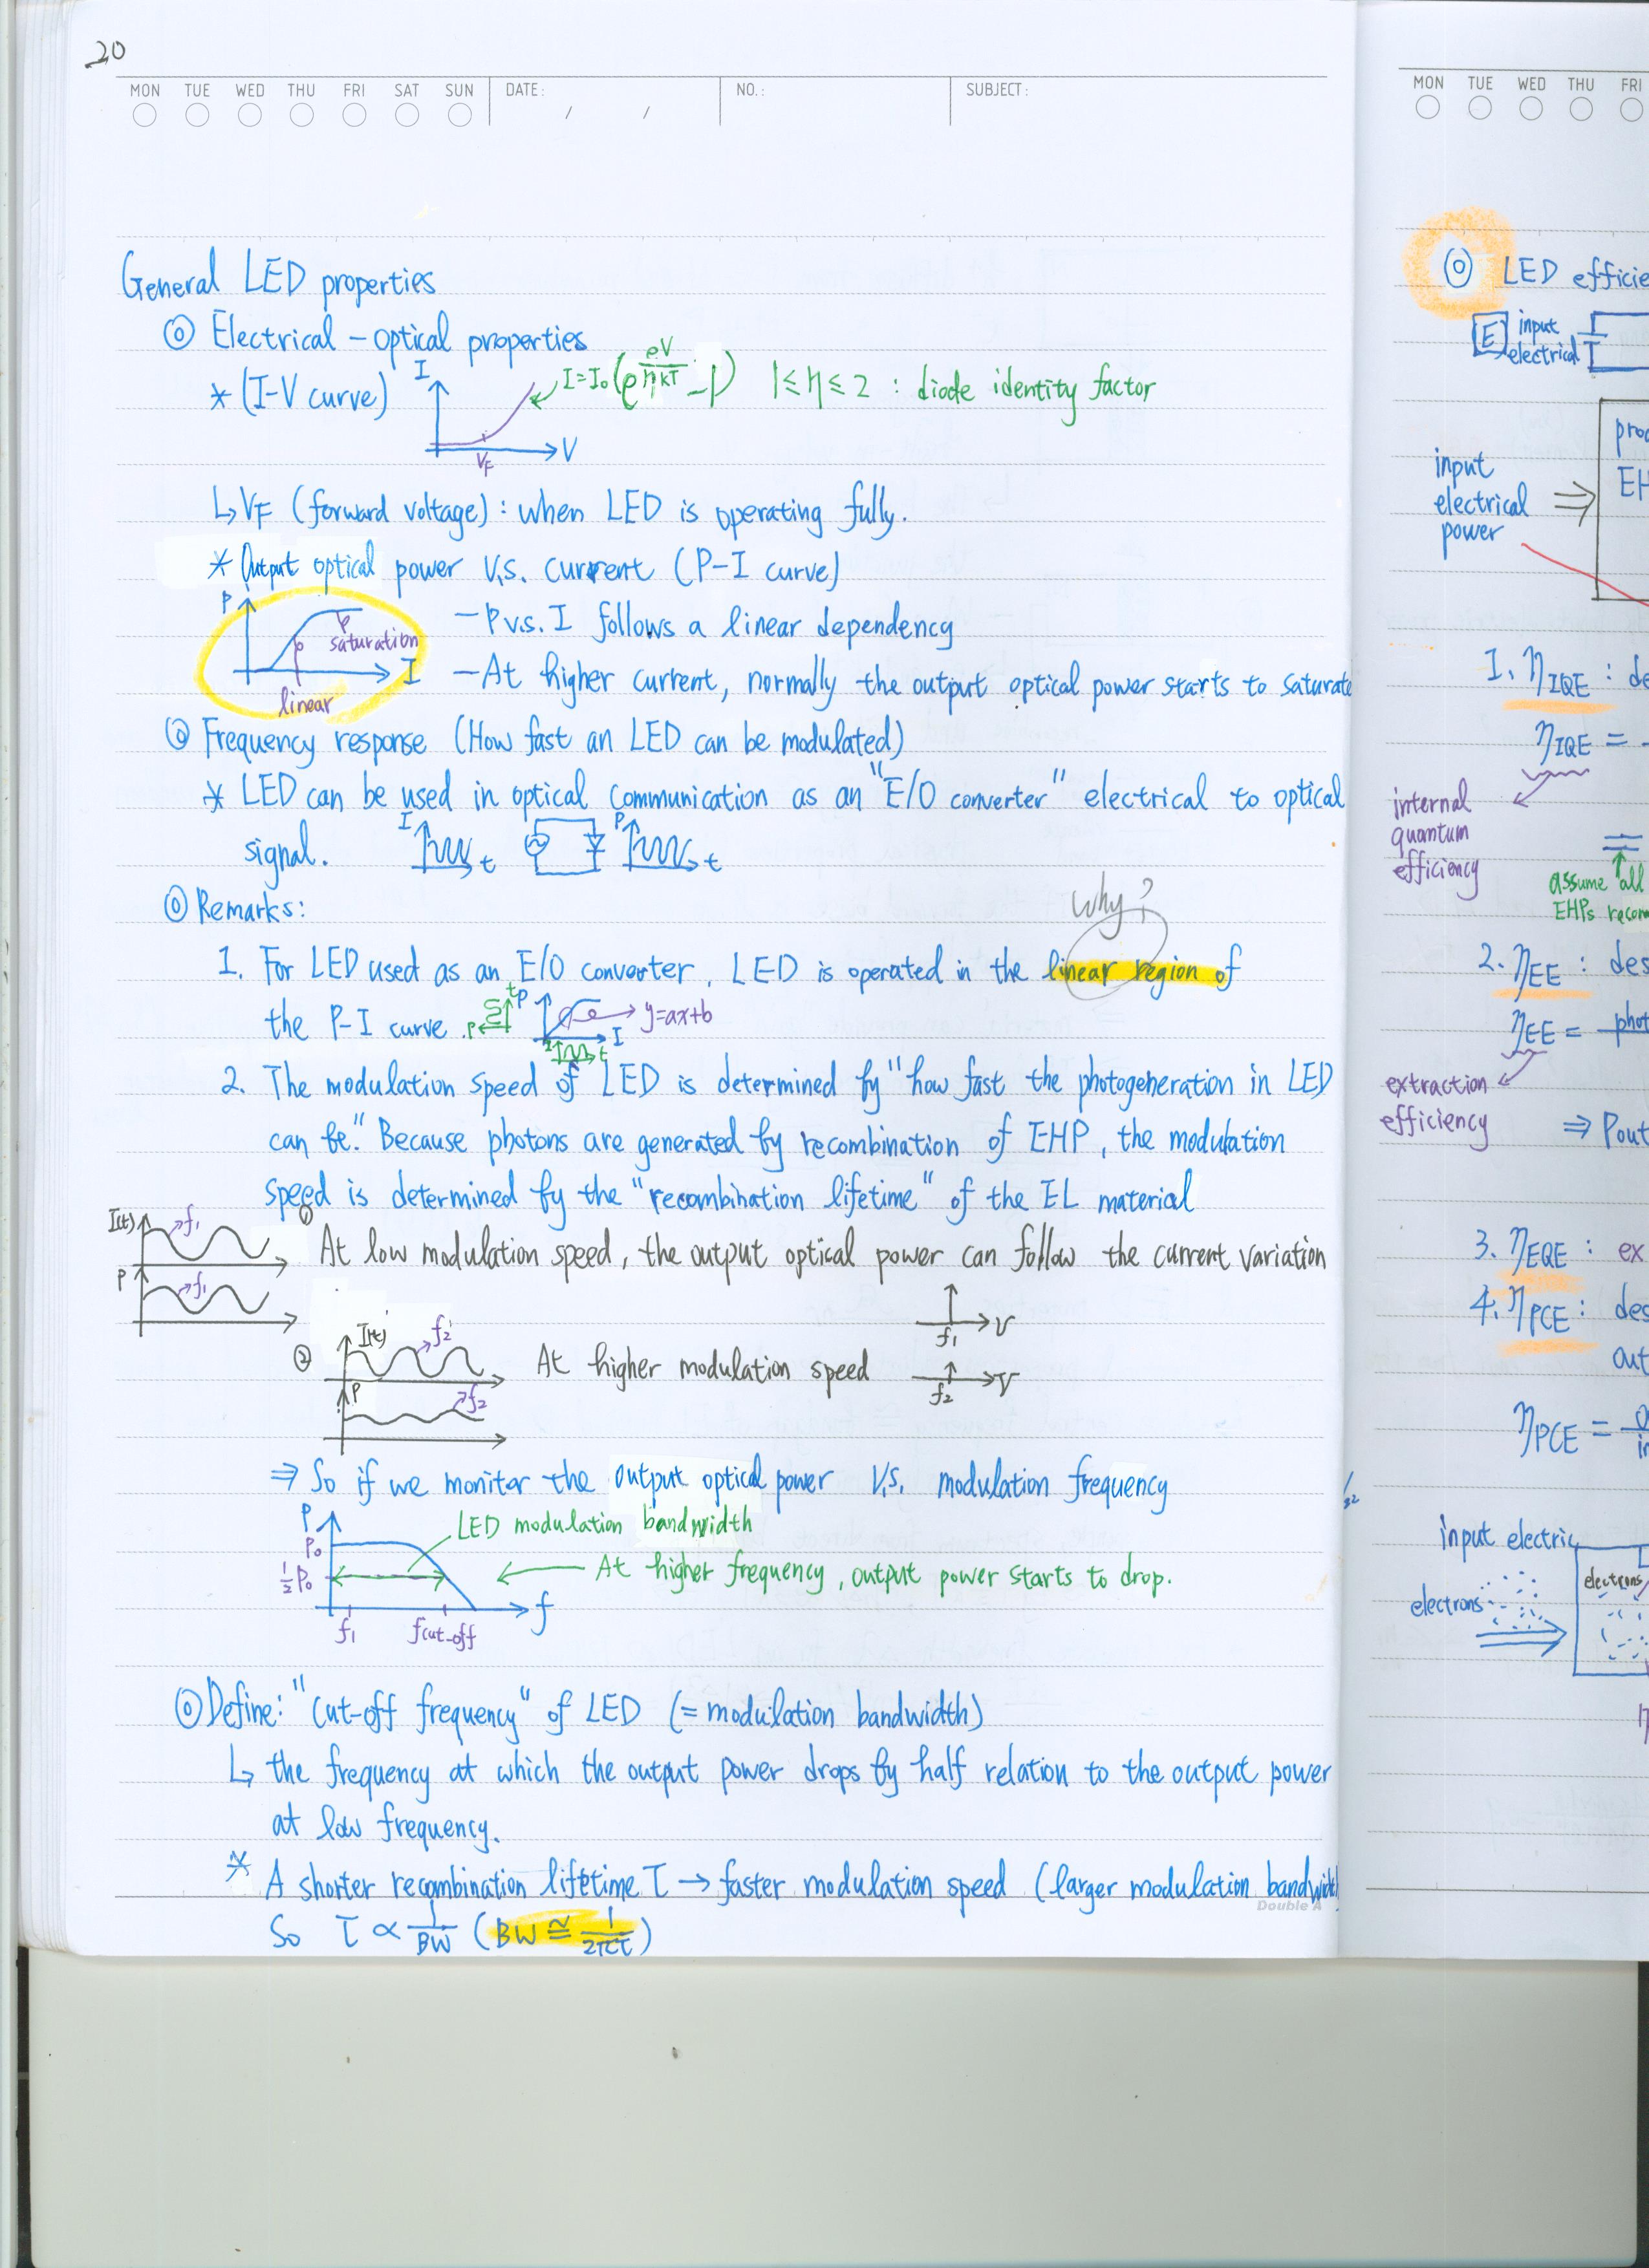 20
MON TUE WED THU FRI SAT SUN DATE: / / NO.: SUBJECT:
General LED properties
◎ Electrical - optical properties
* (I-V curve) I V VF I=I₀(e^(eV/ηkT) -1) 1≤η≤2 : diode identity factor
↳ VF (forward voltage) : when LED is operating fully.
* Output optical power v.s. current (P-I curve)
P saturation I linear
- P v.s. I follows a linear dependency
- At higher current, normally the output optical power starts to saturate
◎ Frequency response (How fast an LED can be modulated)
* LED can be used in optical communication as an "E/O converter" electrical to optical
signal. I t P t
◎ Remarks:
why?
1. For LED used as an E/O converter, LED is operated in the linear region of
the P-I curve. P t P I y=ax+b I t
2. The modulation speed of LED is determined by "how fast the photogeneration in LED
can be." Because photons are generated by recombination of EHP, the modulation
speed is determined by the "recombination lifetime" of the EL material
I(t) f₁ P f₁
① At low modulation speed, the output optical power can follow the current variation
f₁ ν
② I(t) f₂ P f₂ At higher modulation speed f₂ ν
⇒ So if we monitor the output optical power v.s. modulation frequency
P P₀ ½P₀ LED modulation bandwidth
← At higher frequency, output power starts to drop.
f₁ fcut-off f
◎ Define: "Cut-off frequency" of LED (= modulation bandwidth)
↳ the frequency at which the output power drops by half relation to the output power
at low frequency.
* A shorter recombination lifetime τ → faster modulation speed (larger modulation bandwidth
Double A
So τ ∝ 1/BW (BW ≅ 1/2πτ)
MON TUE WED THU FRI
◎ LED efficie
E input electrical
input electrical power ⇒
pro
EH
1. ηIQE : de
ηIQE =
internal quantum efficiency
assume all EHPs recom
2. ηEE : des
ηEE = phot
extraction efficiency
⇒ Pout
3. ηEQE : ex
4. ηPCE : des
out
ηPCE =
input electric
electrons
electrons